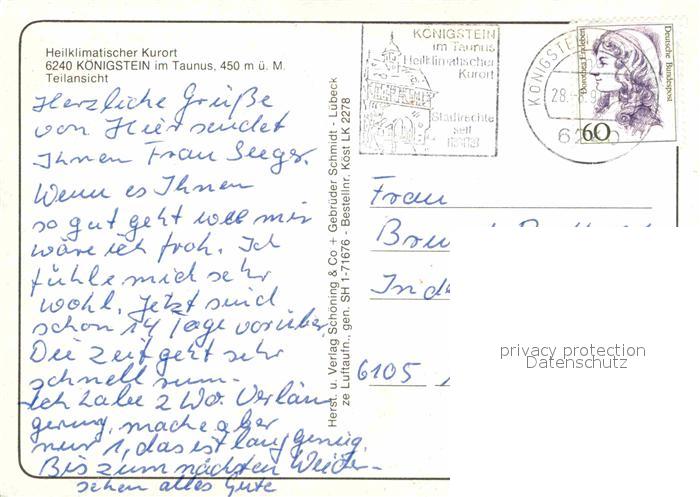 Heilklimatischer Kurort
6240 KÖNIGSTEIN im Taunus, 450 m ü. M.
Teilansicht
Herzliche Grüße
von Hier sendet
Ihnen Frau Seeger.
Wenn es Ihnen
so gut geht wie mir
wäre ich froh. Ich
fühle mich sehr
wohl. Jetzt sind
schon 14 Tage vorüber
Die Zeit geht sehr
schnell rum.
Ich habe 2 Wo. Verlän
gerung, mache aber
nur 1, das ist lang genug.
Bis zum nächsten Wieder-
sehen alles Gute
Herst. u. Verlag Schöning & Co + Gebrüder Schmidt - Lübeck
ze Luftaufn., gen. SH 1-71676 - Bestellnr. Köst LK 2278
KÖNIGSTEIN
im Taunus
Heilklimatischer
Kurort
Stadtrechte
seit
KÖNIGSTE
28.-8.9
62
Dorothea Erxleben
Deutsche Bundespost
60
Frau
6105
privacy protection
Datenschutz